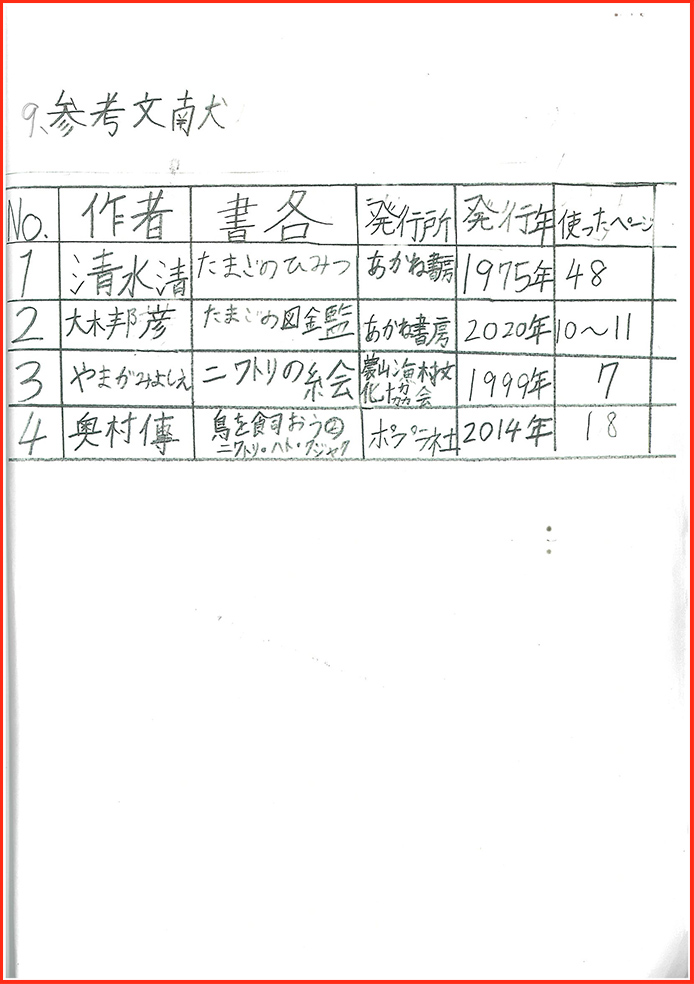 9、参考文献
No. 作者 書名 発行所 発行年 使ったページ
1 清水清 たまごのひみつ あかね書房 1975年 48
2 大木邦彦 たまごの図鑑 あかね書房 2020年 10〜11
3 やまがみよしえ ニワトリの絵 農山漁村文
化協会 1999年 7
4 奥村傳 鳥を飼おう②
ニワトリ・ハト・クジャク ポプラ社 2014年 18